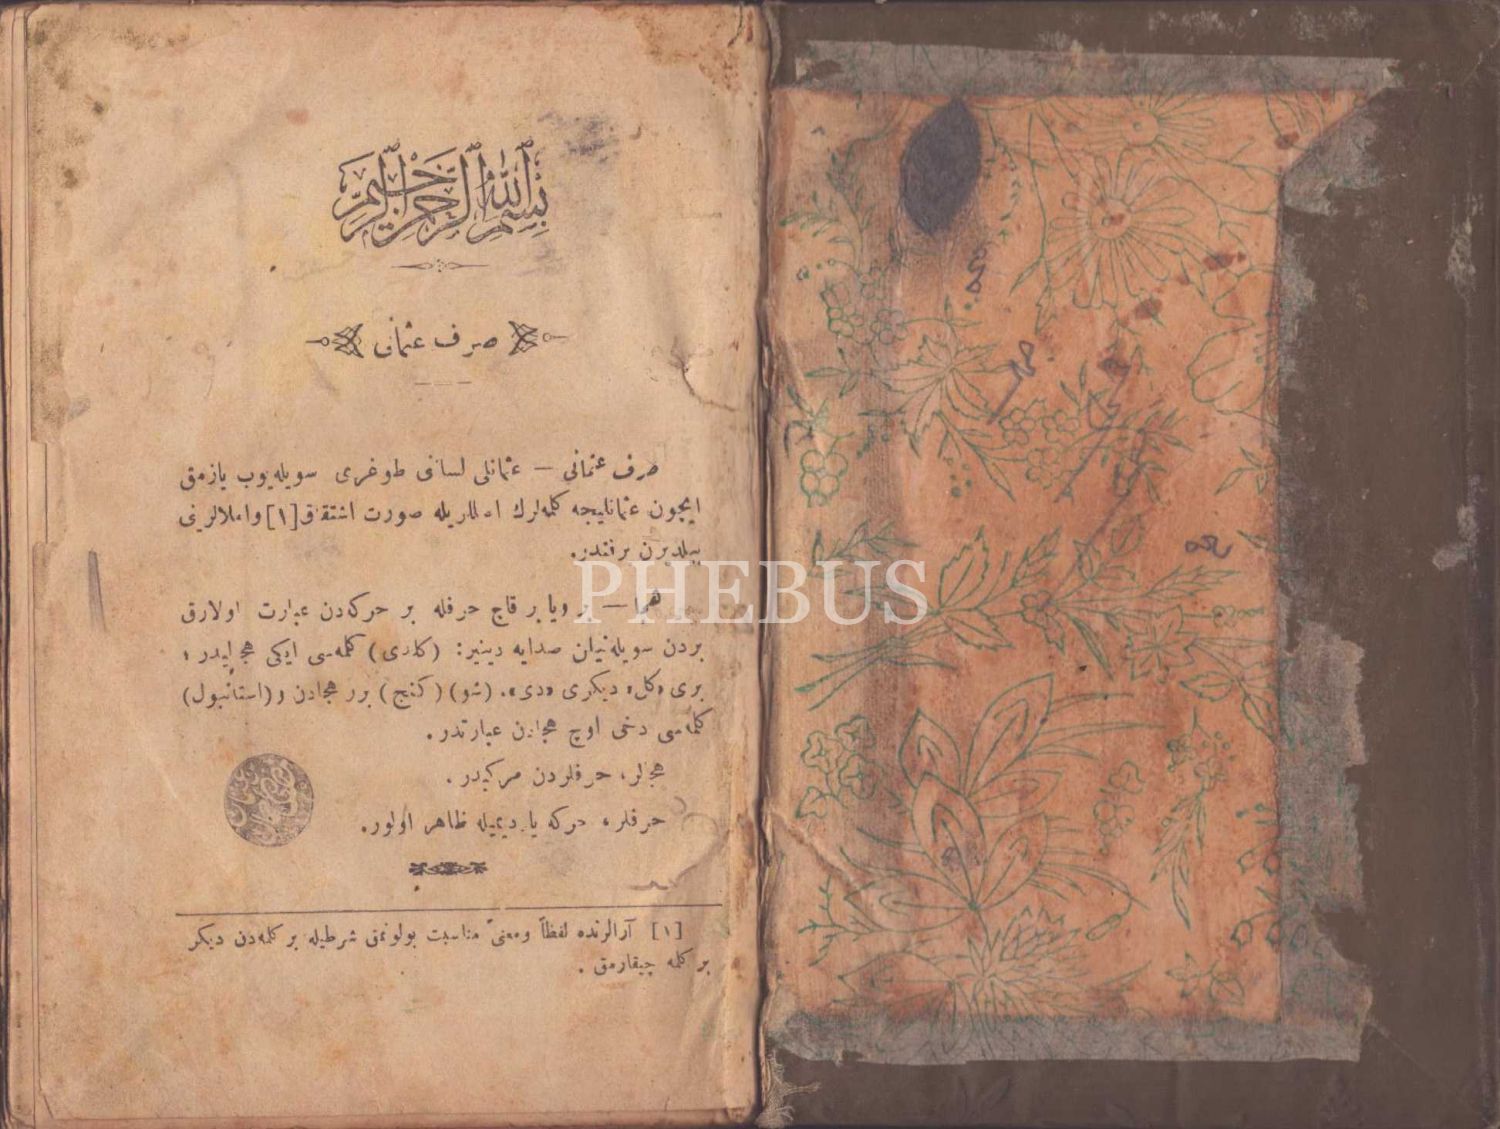 بسم الله الرحمن الرحيم
صرف عثمانی
صرف عثمانی — عثمانلی لسانی طوغری سویله‌یوب یازمق
ایچون عثمانلیجه کلمه‌لرك اصللریله صورت اشتقاق[١]واملالرینی
بیلدیرن برفندر.
هجا — بر ویا بر قاچ حرفله بر حرکه‌دن عبارت اولارق
بردن سویله‌نیلن صدایه دینیر: (کلدی) کلمه‌سی ایکی هجالیدر؛
بری «کل» دیکری «دی». (شو) (کنج) برر هجادن و(استانبول)
کلمه‌سی دخی اوچ هجادن عبارتدر.
هجالر، حرفلردن مرکبدر.
حرفلر، حرکه یاردیمیله ظاهر اولور.
[١] آرالرنده لفظاً ومعنیً مناسبت بولونمق شرطیله بر کلمه‌دن دیکر
بر کلمه چیقارمق.
PHEBUS